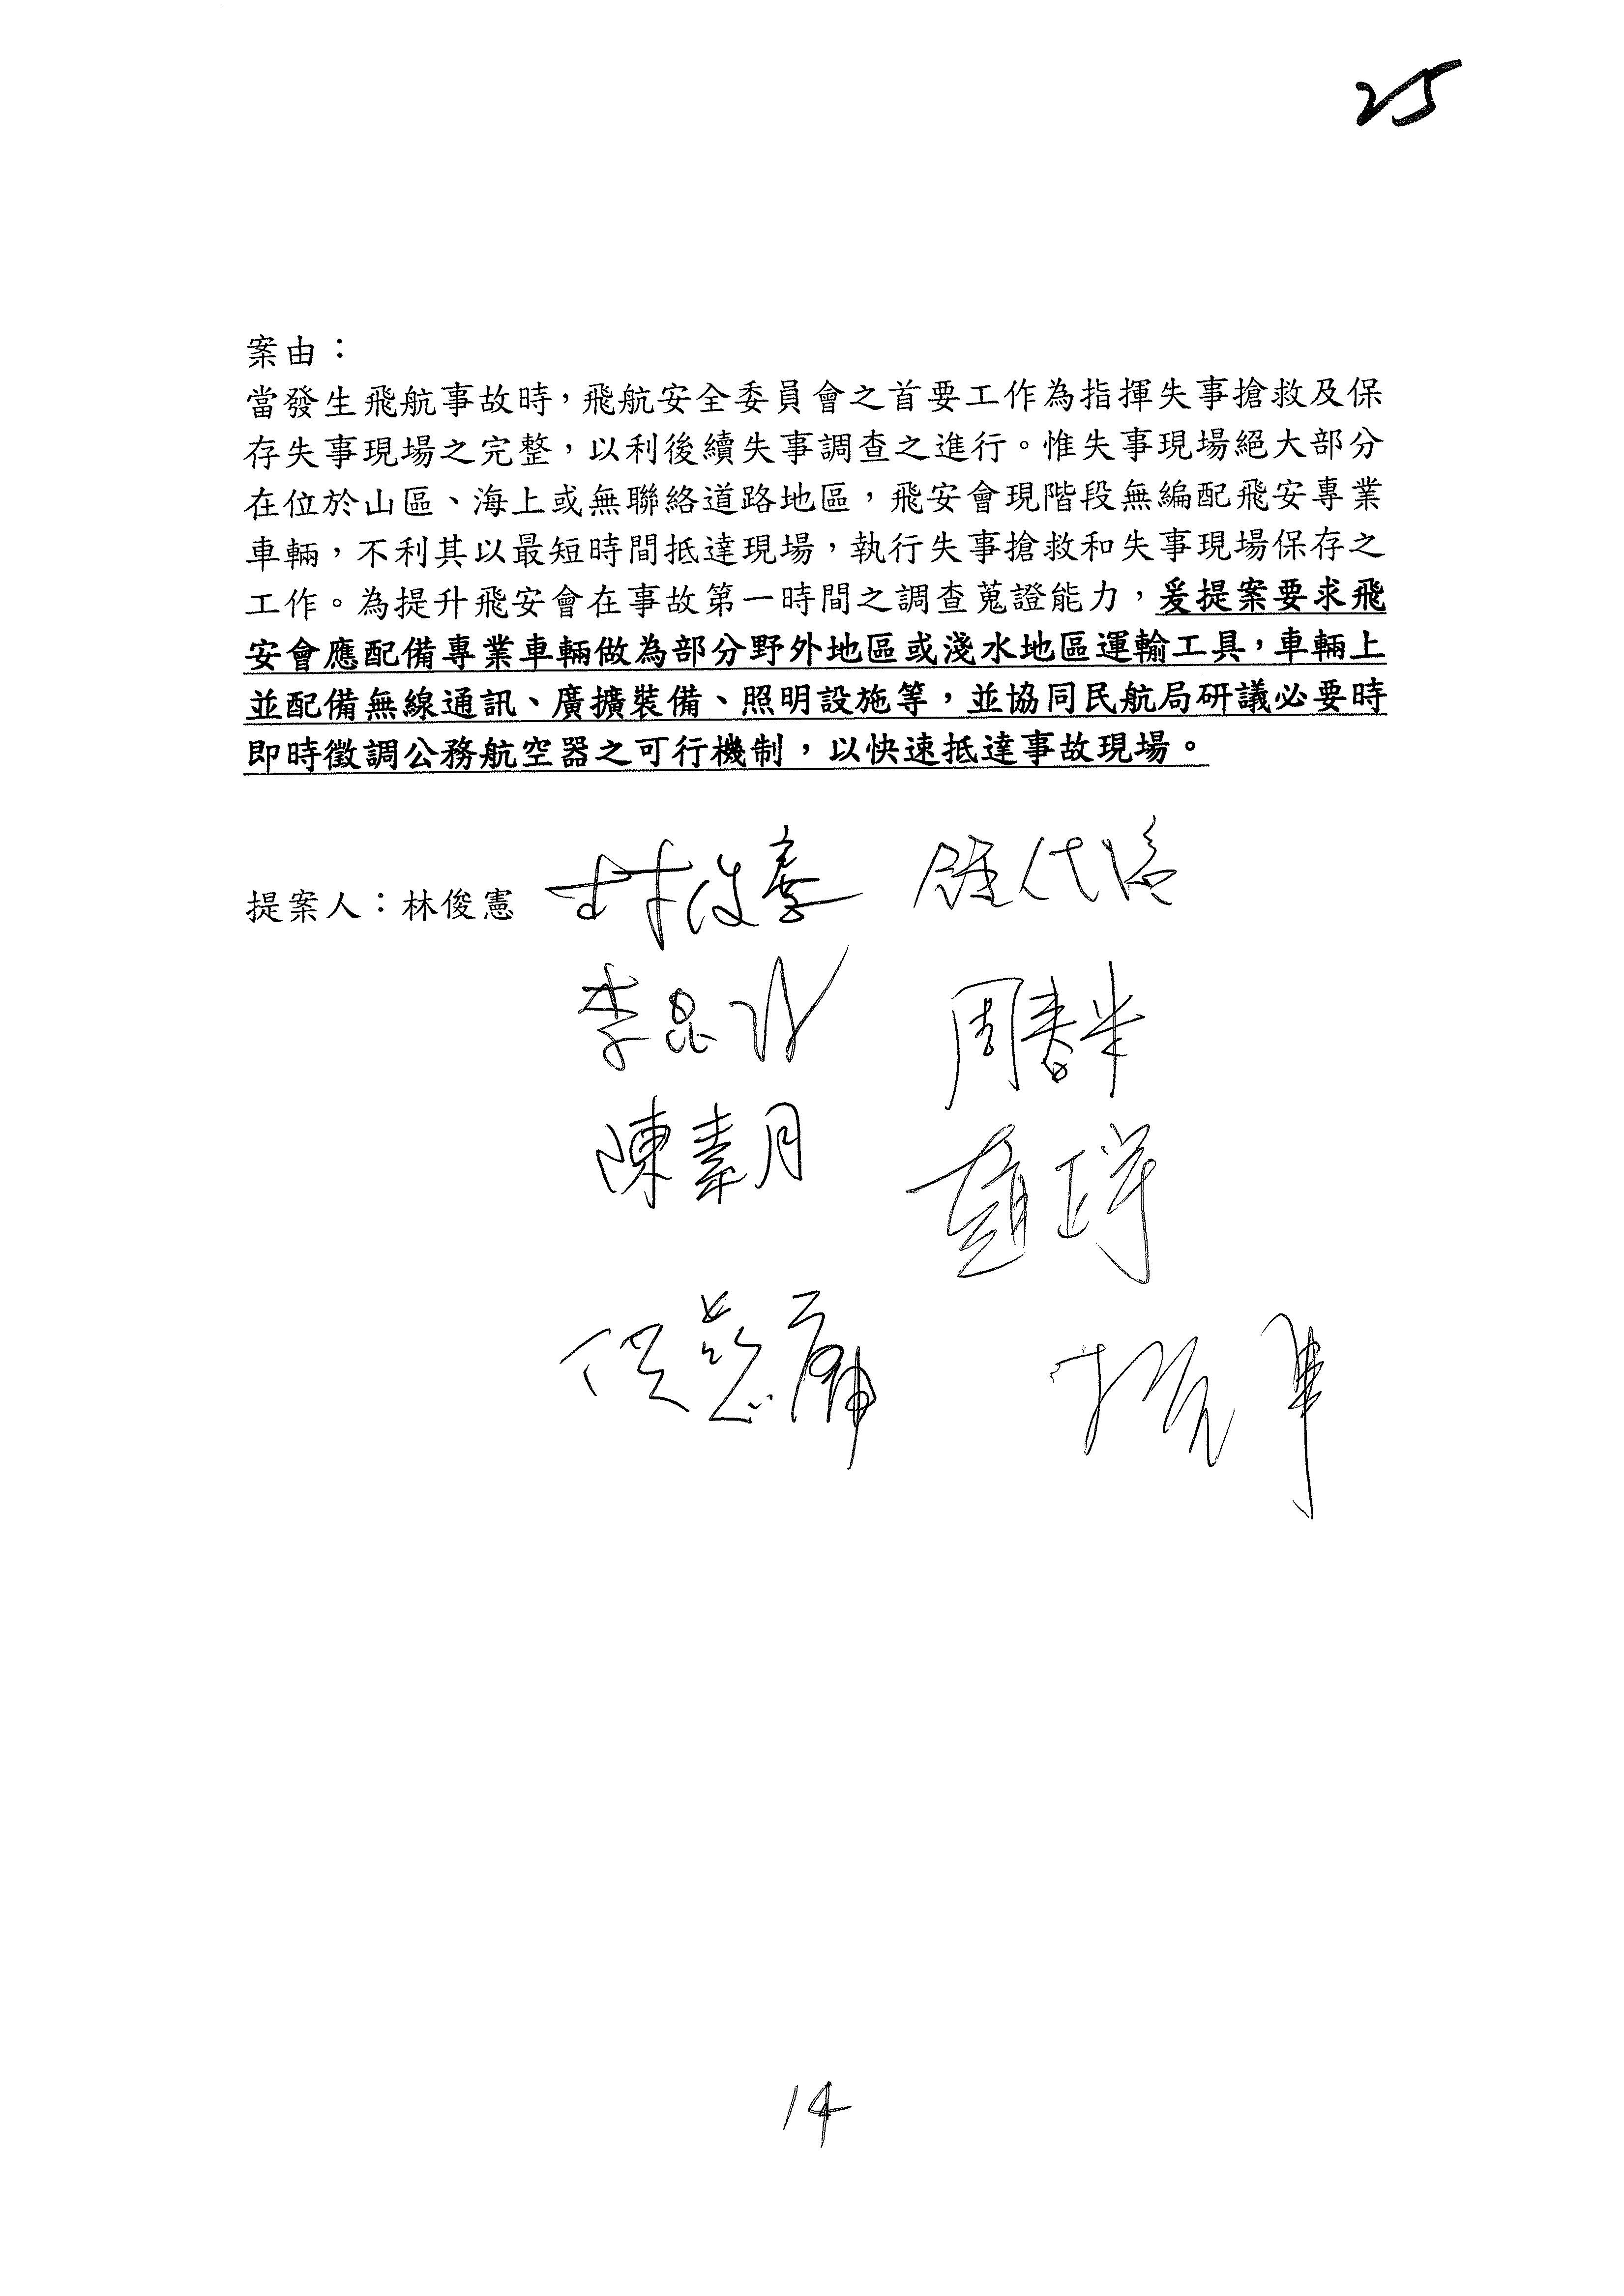 25
案由：
當發生飛航事故時，飛航安全委員會之首要工作為指揮失事搶救及保
存失事現場之完整，以利後續失事調查之進行。惟失事現場絕大部分
在位於山區、海上或無聯絡道路地區，飛安會現階段無編配飛安專業
車輛，不利其以最短時間抵達現場，執行失事搶救和失事現場保存之
工作。為提升飛安會在事故第一時間之調查蒐證能力，爰提案要求飛
安會應配備專業車輛做為部分野外地區或淺水地區運輸工具，車輛上
並配備無線通訊、廣擴裝備、照明設施等，並協同民航局研議必要時
即時徵調公務航空器之可行機制，以快速抵達事故現場。
提案人：林俊憲 林俊憲
李昆
周春米
陳素月
14